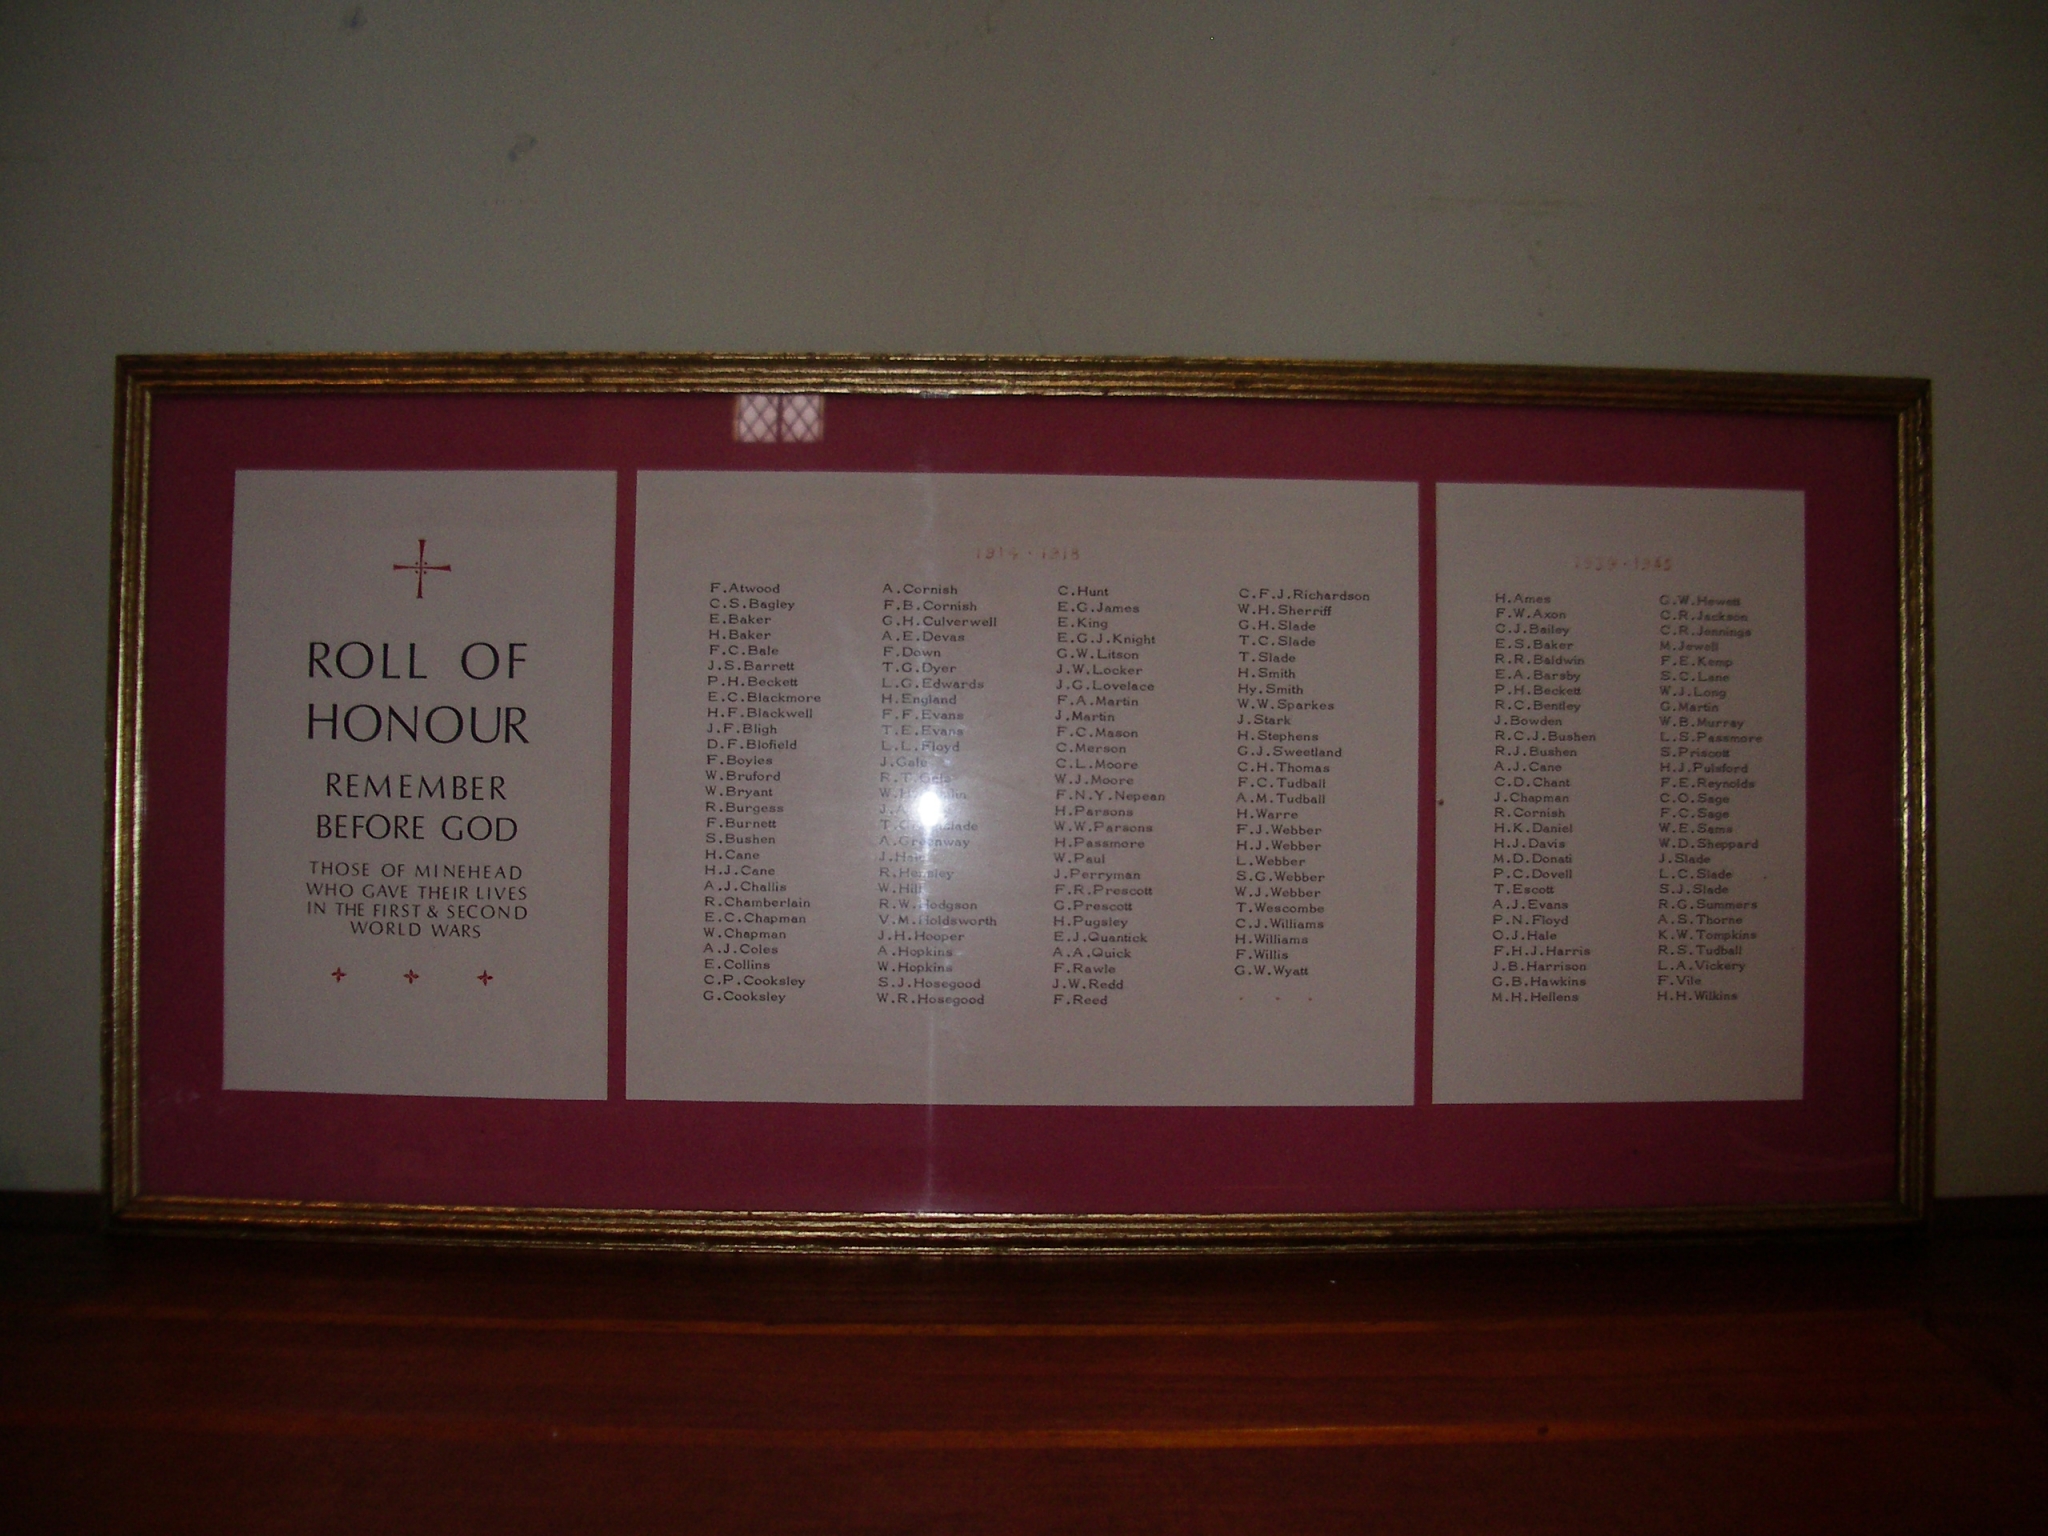 ROLL OF
HONOUR
REMEMBER
BEFORE GOD
THOSE OF MINEHEAD
WHO GAVE THEIR LIVES
IN THE FIRST & SECOND
WORLD WARS
1914 · 1918
F. Atwood
C.S. Bagley
E. Baker
H. Baker
F.C. Bale
J.S. Barrett
P.H. Beckett
E.C. Blackmore
H.F. Blackwell
J.F. Bligh
D.F. Blofield
F. Boyles
W. Bruford
W. Bryant
R. Burgess
F. Burnett
S. Bushen
H. Cane
H.J. Cane
A.J. Challis
R. Chamberlain
E.C. Chapman
W. Chapman
A.J. Coles
E. Collins
C.P. Cooksley
G. Cooksley
A. Cornish
F.B. Cornish
G.H. Culverwell
A.E. Devas
F. Down
T.G. Dyer
L.G. Edwards
H. England
F.F. Evans
T.E. Evans
L.L. Floyd
J. Gale
R.T.
W.
J.
T.
A. Greenway
J.
R. Hensley
W. Hill
R.W. Hodgson
V.M. Holdsworth
J.H. Hooper
A. Hopkins
W. Hopkins
S.J. Hosegood
W.R. Hosegood
C. Hunt
E.G. James
E. King
E.G.J. Knight
G.W. Litson
J.W. Locker
J.G. Lovelace
F.A. Martin
J. Martin
F.C. Mason
C. Merson
C.L. Moore
W.J. Moore
F.N.Y. Nepean
H. Parsons
W.W. Parsons
H. Passmore
W. Paul
J. Perryman
F.R. Prescott
G. Prescott
H. Pugsley
E.J. Quantick
A.A. Quick
F. Rawle
J.W. Redd
F. Reed
C.F.J. Richardson
W.H. Sherriff
G.H. Slade
T.C. Slade
T. Slade
H. Smith
Hy. Smith
W.W. Sparkes
J. Stark
H. Stephens
G.J. Sweetland
C.H. Thomas
F.C. Tudball
A.M. Tudball
H. Warre
F.J. Webber
H.J. Webber
L. Webber
S.G. Webber
W.J. Webber
T. Wescombe
C.J. Williams
H. Williams
F. Willis
G.W. Wyatt
1939 · 1945
H. Ames
F.W. Axon
C.J. Bailey
E.S. Baker
R.R. Baldwin
E.A. Barsby
P.H. Beckett
R.C. Bentley
J. Bowden
R.C.J. Bushen
R.J. Bushen
A.J. Cane
C.D. Chant
J. Chapman
R. Cornish
H.K. Daniel
H.J. Davis
M.D. Donati
P.C. Dovell
T. Escott
A.J. Evans
P.N. Floyd
O.J. Hale
F.H.J. Harris
J.B. Harrison
G.B. Hawkins
M.H. Hellens
G.W. Hewett
C.R. Jackson
C.R. Jennings
M. Jewell
F.E. Kemp
S.C. Lane
W.J. Long
G. Martin
W.B. Murray
L.S. Passmore
S. Priscott
H.J. Pulsford
F.E. Reynolds
C.O. Sage
F.C. Sage
W.E. Sams
W.D. Sheppard
J. Slade
L.C. Slade
S.J. Slade
R.G. Summers
A.S. Thorne
K.W. Tompkins
R.S. Tudball
L.A. Vickery
F. Vile
H.H. Wilkins